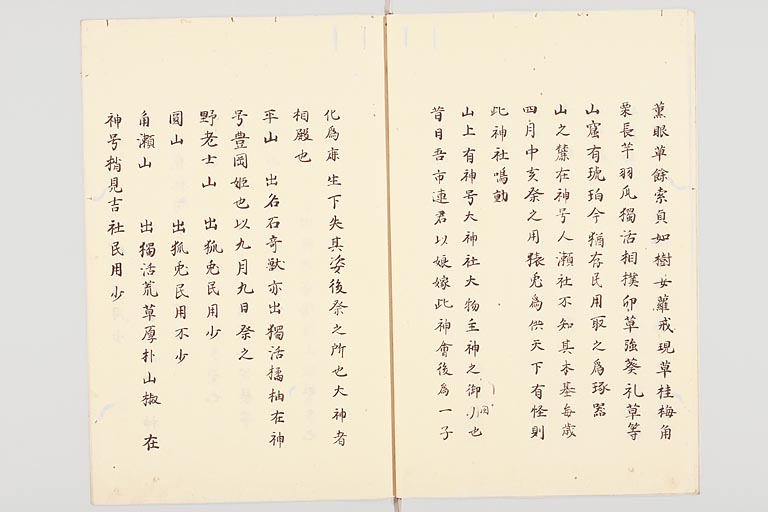 薫眼草餘索貞如樹女蘿戒現草桂梅角
栗長芋羽瓜獨活相撲卯草強葵礼草等
山窟有琥珀今猶存民用取之為琢器
山之麓在神号人瀬社不知其本基每歳
四月中亥祭之用猿兎為供天下有怪則
此神社鳴動
山上有神号大神社大物主神之御也
昔日吾市連君以娘嫁此神會後為一子
化為麻生下失其姿後祭之所也大神者
相殿也
平山 出名石奇獣亦出獨活橘柚在神
号豊岡姫也以九月九日祭之
野老士山 出狐兎民用少
圓山 出狐兎民用不少
角瀬山 出獨活荒草厚朴山椒 在
神号楕見吉社民用少